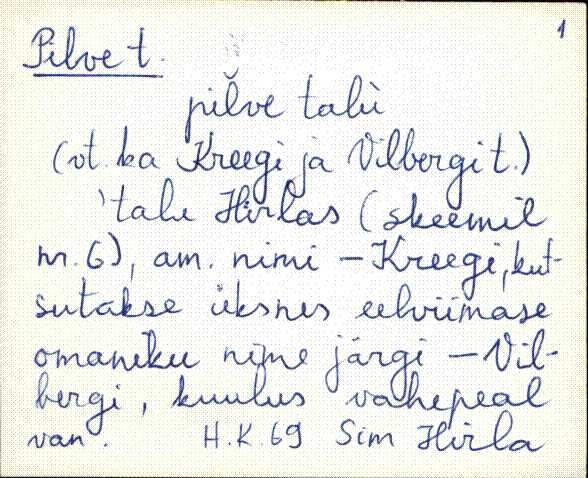 1
Pilve t.
pĭlve talù
(vt. ka Kreegi ja Vilbergi t.)
'talu Hirlas (skeemil
nr. 6), am. nimi – Kreegi, kut-
sutakse üksnes eelviimase
omaniku nime järgi – Vil-
bergi, kuulus vahepeal
van. H.K. 69 Sim Hirla